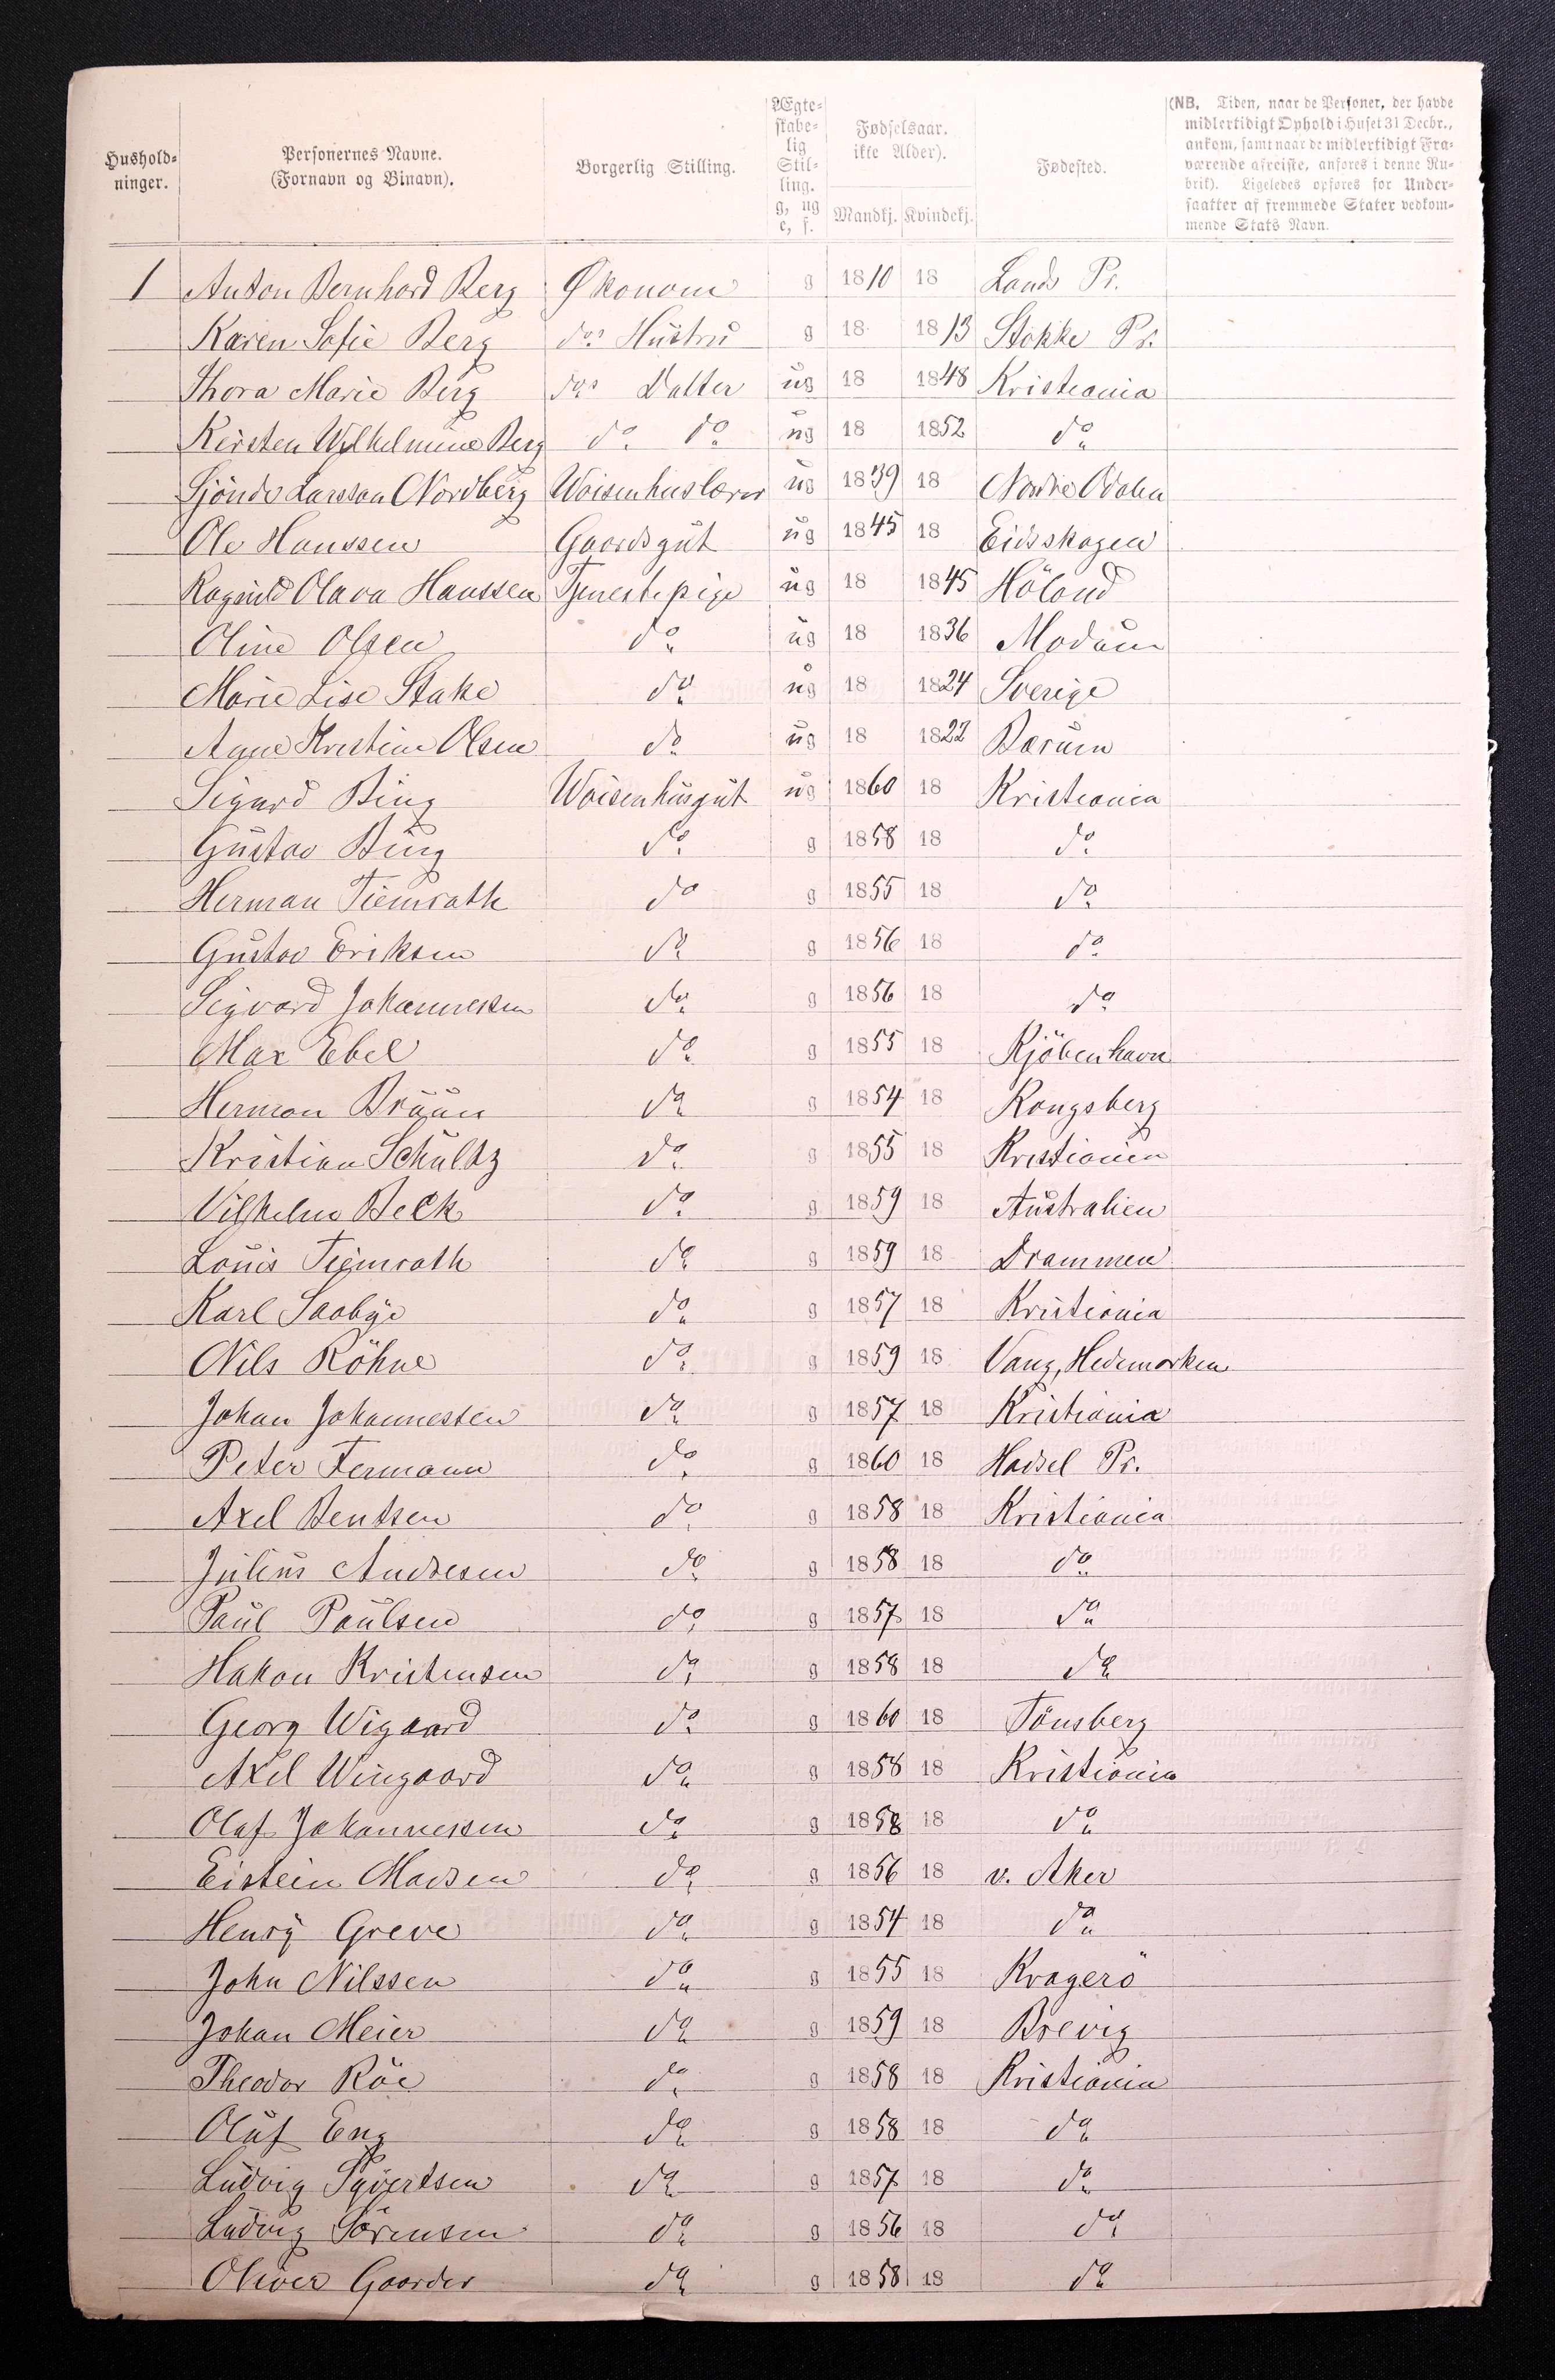 Hushold-
ninger.
Personernes Navne.
(Fornavn og Binavn).
Borgerlig Stilling.
Ægte-
skabe-
lig
Stil-
ling.
g, ug
e, f.
Fødselsaar.
ikke Alder).
Mandkj. Kvindekj.
Fødested.
(NB. Tiden, naar de Personer, der havde
midlertidigt Ophold i Huset 31 Decbr.,
ankom, samt naar de midlertidigt Fra-
værende afreiste, anføres i denne Ru-
brik). Ligeledes opføres for Under-
saatter af fremmede Stater vedkom-
mende Stats Navn.
1 Anton Bernhard Berg Økonom g 1810 18 Lands Pr.
Karen Sofie Berg dos Hustru g 18 1813 Stokke Pr.
Thora Marie Berg dos Datter ug 18 1848 Kristiania
Kirsten Wilhelmine Berg do do ug 18 1852 do
Sjönde Larsson Nordberg Waisenhuslærer ug 1839 18 Nordre Odalen
Ole Hanssen Gaardsgut ug 1845 18 Eidsskogen
Ragnild Olava Hanssen Tjenestepige ug 18 1845 Höland
Oline Olsen do ug 18 1836 Modum
Marie Lise Stake do ug 18 1824 Sverige
Agne Kristine Olsen do ug 18 1822 Bærum
Sigurd Bing Waisenhusgut ug 1860 18 Kristiania
Gustav Bing do g 1858 18 do
Herman Tiemroth do g 1855 18 do
Gustav Eriksen do g 1856 18 do
Sigvard Johannessen do g 1856 18 do
Max Ebel do g 1855 18 Kjöbenhavn
Herman Bruun do g 1854 18 Kongsberg
Kristian Schultz do g 1855 18 Kristiania
Vilhelm Beck do g 1859 18 Australien
Louis Tiemroth do g 1859 18 Drammen
Karl Saabye do g 1857 18 Kristiania
Nils Röhne do g 1859 18 Vang, Hedemarken
Johan Johannessen do g 1857 18 Kristiania
Peter Fermann do g 1860 18 Hadsel Pr.
Axel Bentsen do g 1858 18 Kristiania
Julius Andresen do g 1858 18 do
Paul Paulsen do g 1857 18 do
Hakon Kristensen do g 1858 18 do
Georg Wigaard do g 1860 18 Tönsberg
Axel Wingaard do g 1858 18 Kristiania
Olaf Johannessen do g 1858 18 do
Eistein Madsen do g 1856 18 v. Aker
Henry Greve do g 1854 18 do
John Nilssen do g 1855 18 Kragerö
Johan Meier do g 1859 18 Brevig
Theodor Röe do g 1858 18 Kristiania
Oluf Eng do g 1858 18 do
Ludvig Syvertsen do g 1857 18 do
Ludvig Sörensen do g 1856 18 do
Oliver Gaarder do g 1858 18 do